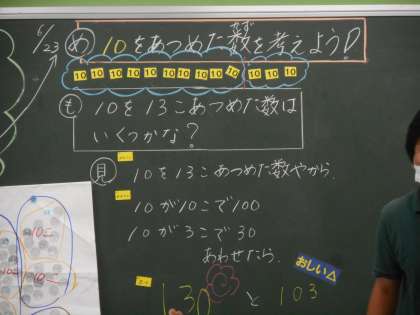 6/23
め 10をあつめた数を考えよう!
かず
10 10 10 10 10 10 10 10 10 10 10 10 10
も 10を13こあつめた数は
いくつかな?
見 10を13こあつめた数やから.
10が10こで100
10が3こで30
あわせたら.
おしい△
130 と 103
10こ
10こ